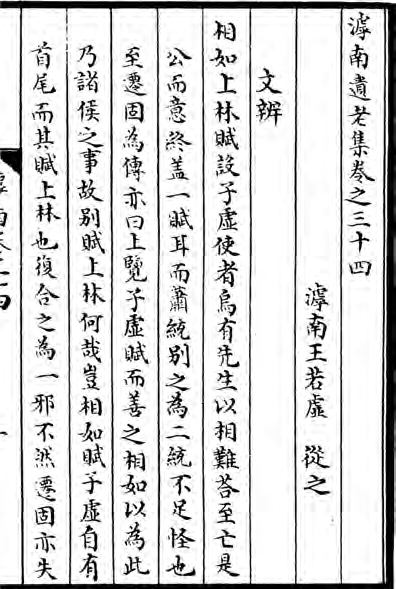 滹南遺老集卷之三十四
滹南王若虛 從之
文辨
相如上林賦設子虛使者烏有先生以相難荅至亡是
公而意終盖一賦耳而蕭統别之為二統不足怪也
至遷固為傳亦曰上覽子虛賦而善之相如以為此
乃諸侯之事故别賦上林何哉豈相如賦子虛自有
首尾而其賦上林也復合之為一邪不然遷固亦失